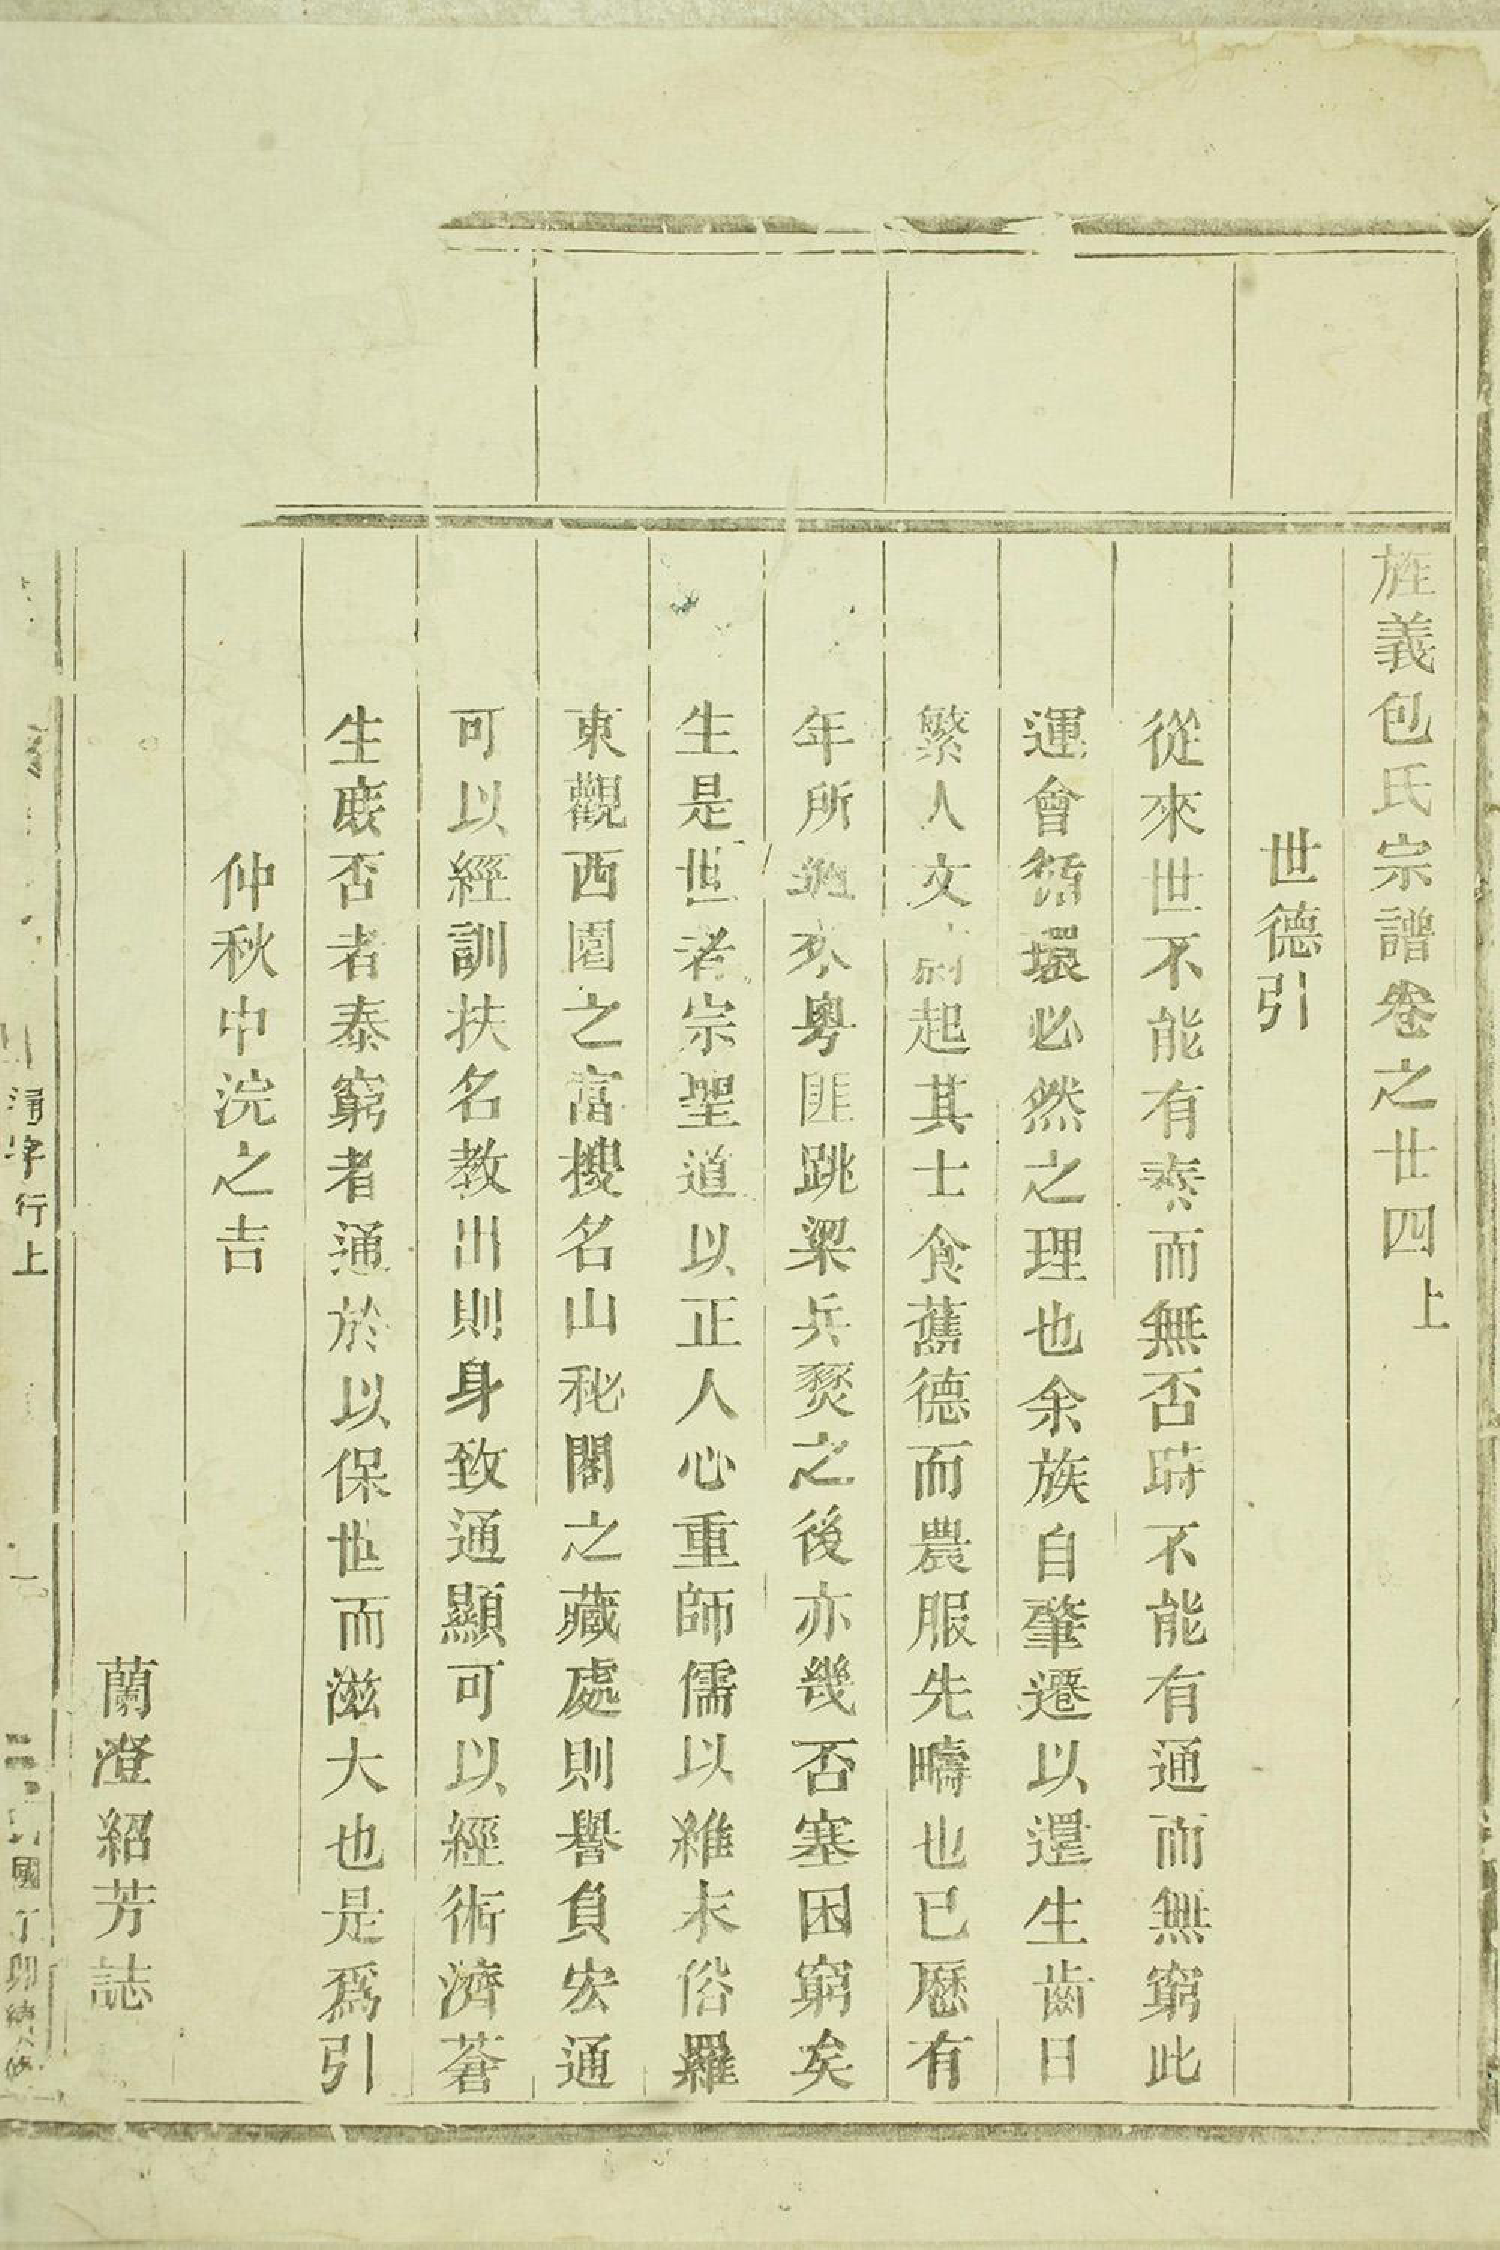 旌義包氏宗譜卷之廿四上
世德引
從來世不能有泰而無否時不能有通而無窮此
運會循環必然之理也余族自肇遷以還生齒日
繁人文蔚起其士食舊德而農服先疇也已歷有
年所迨來粵匪跳梁兵燹之後亦幾否塞困窮矣
生是世者宗聖道以正人心重師儒以維末俗羅
東觀西園之富搜名山秘閣之藏處則譽負宏通
可以經訓扶名教出則身致通顯可以經術濟蒼
生庶否者泰窮者通於以保世而滋大也是爲引
仲秋中浣之吉
蘭澄紹芳誌
清字行上
一
國丁卯續修